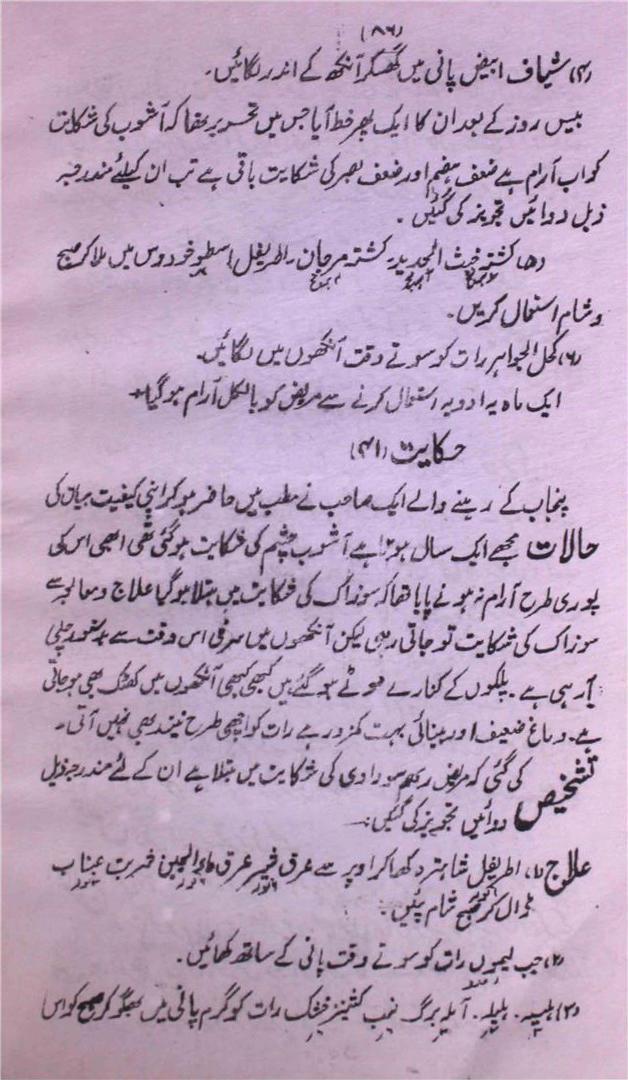 (۸۶)
(۴) شیاف ابیض پانی میں گھسکر آنکھ کے اندر لگائیں۔
بیس روز کے بعد ان کا ایک پھر خط آیا جس میں تحریر تھا کہ آشوب کی شکایت
کو اب آرام ہے ضعف ہضم اور ضعف بصر کی شکایت باقی ہے تب ان کیلئے مندرجہ
ذیل دوائیں تجویز کی گئیں۔
(۵) کشتہ خبث الحدید۔ کشتہ مرجان۔ اطریفل اسطوخودوس میں ملا کر صبح
و شام استعمال کریں۔
(۶) کحل الجواہر رات کو سوتے وقت آنکھوں میں لگائیں۔
ایک ماہ یہ ادویہ استعمال کرنے سے مریض کو بالکل آرام ہو گیا۔
حکایت (۴۱)
پنجاب کے رہنے والے ایک صاحب نے مطب میں حاضر ہو کر اپنی کیفیت بیان کی
حالات مجھے ایک سال ہوتا ہے آشوب چشم کی شکایت ہو گئی تھی ابھی اس کی
پوری طرح آرام نہ ہونے پایا تھا کہ سوزاک کی شکایت میں مبتلا ہو گیا علاج و معالجہ سے
سوزاک کی شکایت تو جاتی رہی لیکن آنکھوں میں سرخی اس وقت سے بدستور چلی
آرہی ہے۔ پلکوں کے کنارے موٹے ہو گئے ہیں کبھی کبھی آنکھوں میں کھٹک بھی ہو جاتی
ہے۔ دماغ ضعیف اور بینائی بہت کمزور ہے رات کو اچھی طرح نیند بھی نہیں آتی۔
تشخیص کی گئی کہ مریض رمد سوداوی کی شکایت میں مبتلا ہے ان کے لئے مندرجہ ذیل
دوائیں تجویز کی گئیں:۔
علاج (۱) اطریفل شاہترہ کھا کر اوپر سے عرق عرق ماء الجبن شربت عناب
ڈال کر صبح شام پئیں۔
(۲) حب لیموں رات کو سوتے وقت پانی کے ساتھ کھائیں۔
(۳) ہلیلہ۔ بلیلہ۔ آملہ برگ نیب کشنیز خشک رات کو گرم پانی میں بھگو کر صبح کو اس